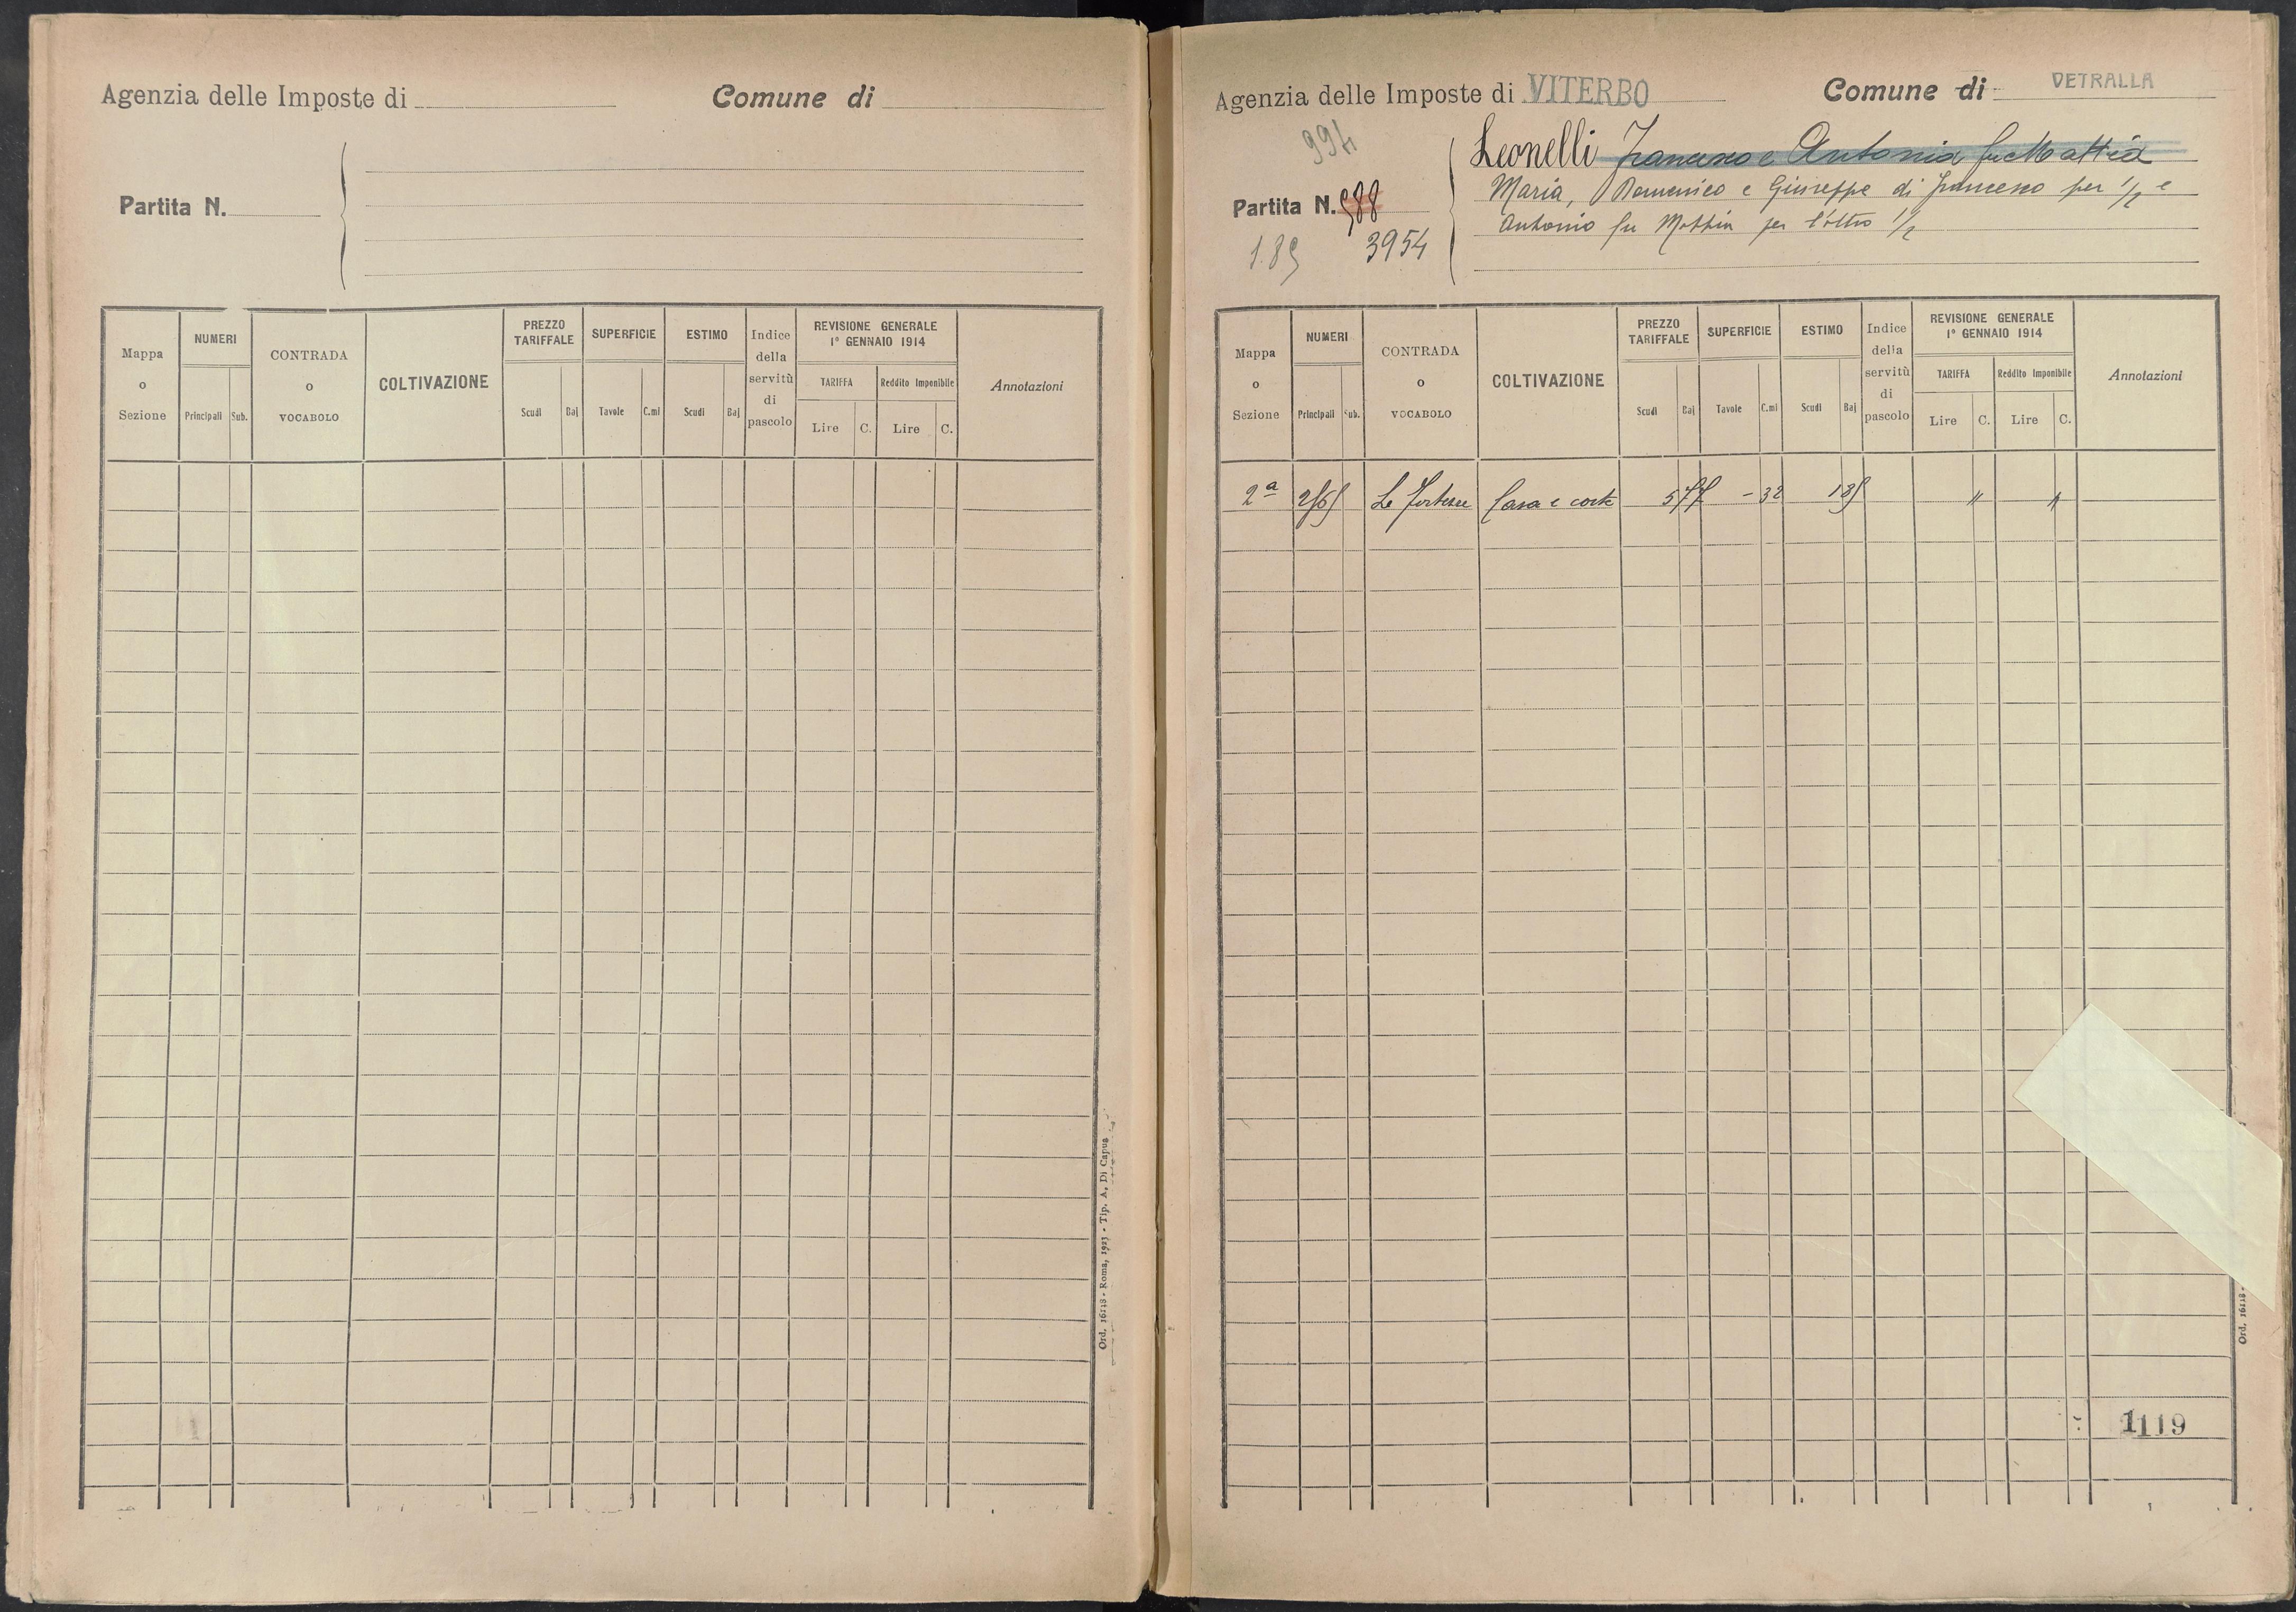 Agenzia delle Imposte di Comune di
Partita N.
Mappa o Sezione NUMERI Principali Sub. CONTRADA o VOCABOLO COLTIVAZIONE PREZZO TARIFFALE Scudi Baj SUPERFICIE Tavole C.mi ESTIMO Scudi Baj Indice della servitù di pascolo REVISIONE GENERALE 1° GENNAIO 1914 TARIFFA Lire C. Reddito Imponibile Lire C. Annotazioni
Ord. 16118 - Roma, 1923 - Tip. A. Di Capua
Agenzia delle Imposte di VITERBO Comune di VETRALLA
994
Leonelli Francesco e Antonia fu Mattia
Partita N. 988
Maria, Domenico e Giuseppe di Francesco per 1/2 e
Antonio fu Mattia per l'altro 1/2
1.89 3954
Mappa o Sezione NUMERI Principali Sub. CONTRADA o VOCABOLO COLTIVAZIONE PREZZO TARIFFALE Scudi Baj SUPERFICIE Tavole C.mi ESTIMO Scudi Baj Indice della servitù di pascolo REVISIONE GENERALE 1° GENNAIO 1914 TARIFFA Lire C. Reddito Imponibile Lire C. Annotazioni
2ª Le Casa e corte - 32 " "
1119
Ord. 16118 -